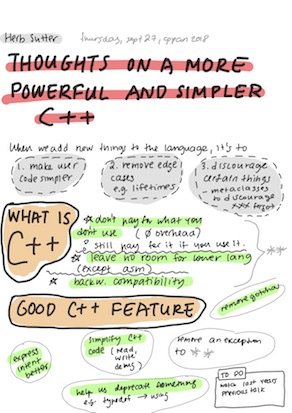 Herb Sutter
thursday, sept 27, cppcon 2018
THOUGHTS ON A MORE
POWERFUL AND SIMPLER
C++
When we add new things to the language, it's to
1. make user
code simpler
2. remove edge
cases
e.g. lifetimes
3. discourage
certain things
- metaclasses
to discourage
WHAT IS
C++
don't pay for what you
don't use (Ø overhead)
still pay for it if you use it.
leave no room for lower lang
(except asm)
backw. compatibility
**
remove gotcha
GOOD C++ FEATURE
express
intent
better
simplify C++
code (read,
write
debug)
remove an exception
to **
help us deprecate something
e.g. typedef → using
TO DO
watch last year's
previous talk